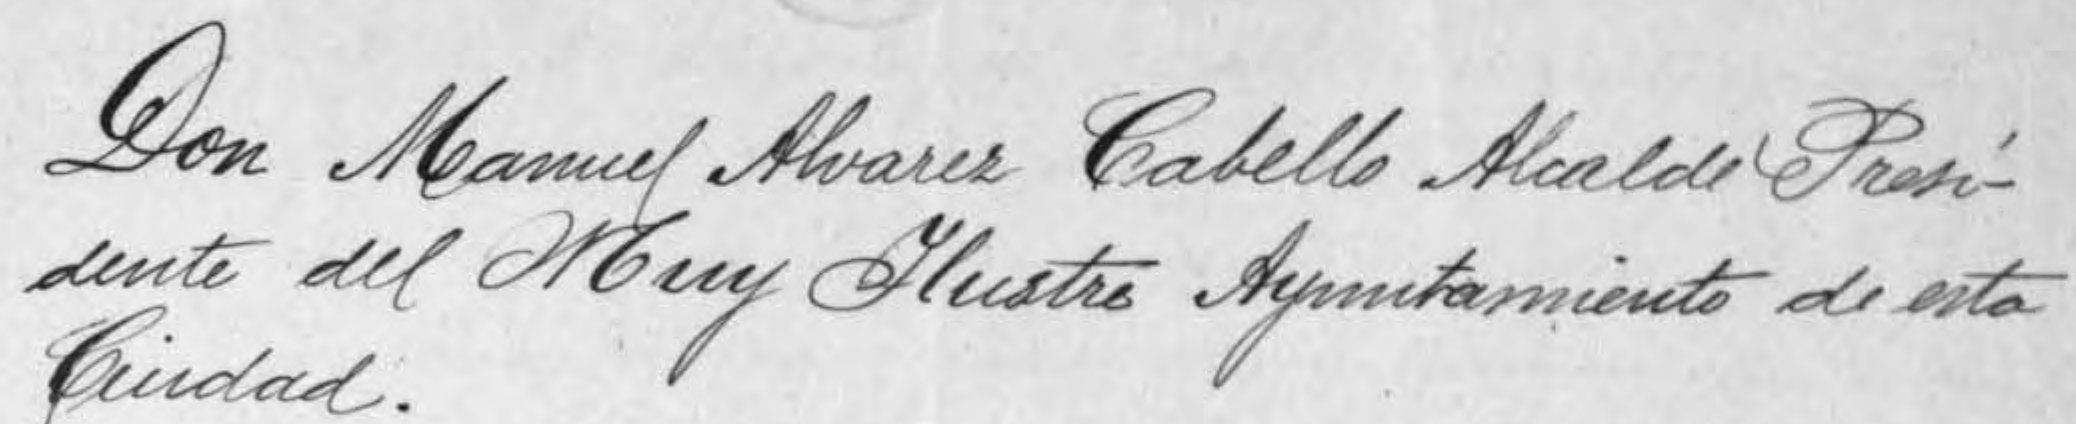 Don Manuel Alvarez Cabello Alcalde Presi-
dente del Muy Ilustre Ayuntamiento de esta
Ciudad.